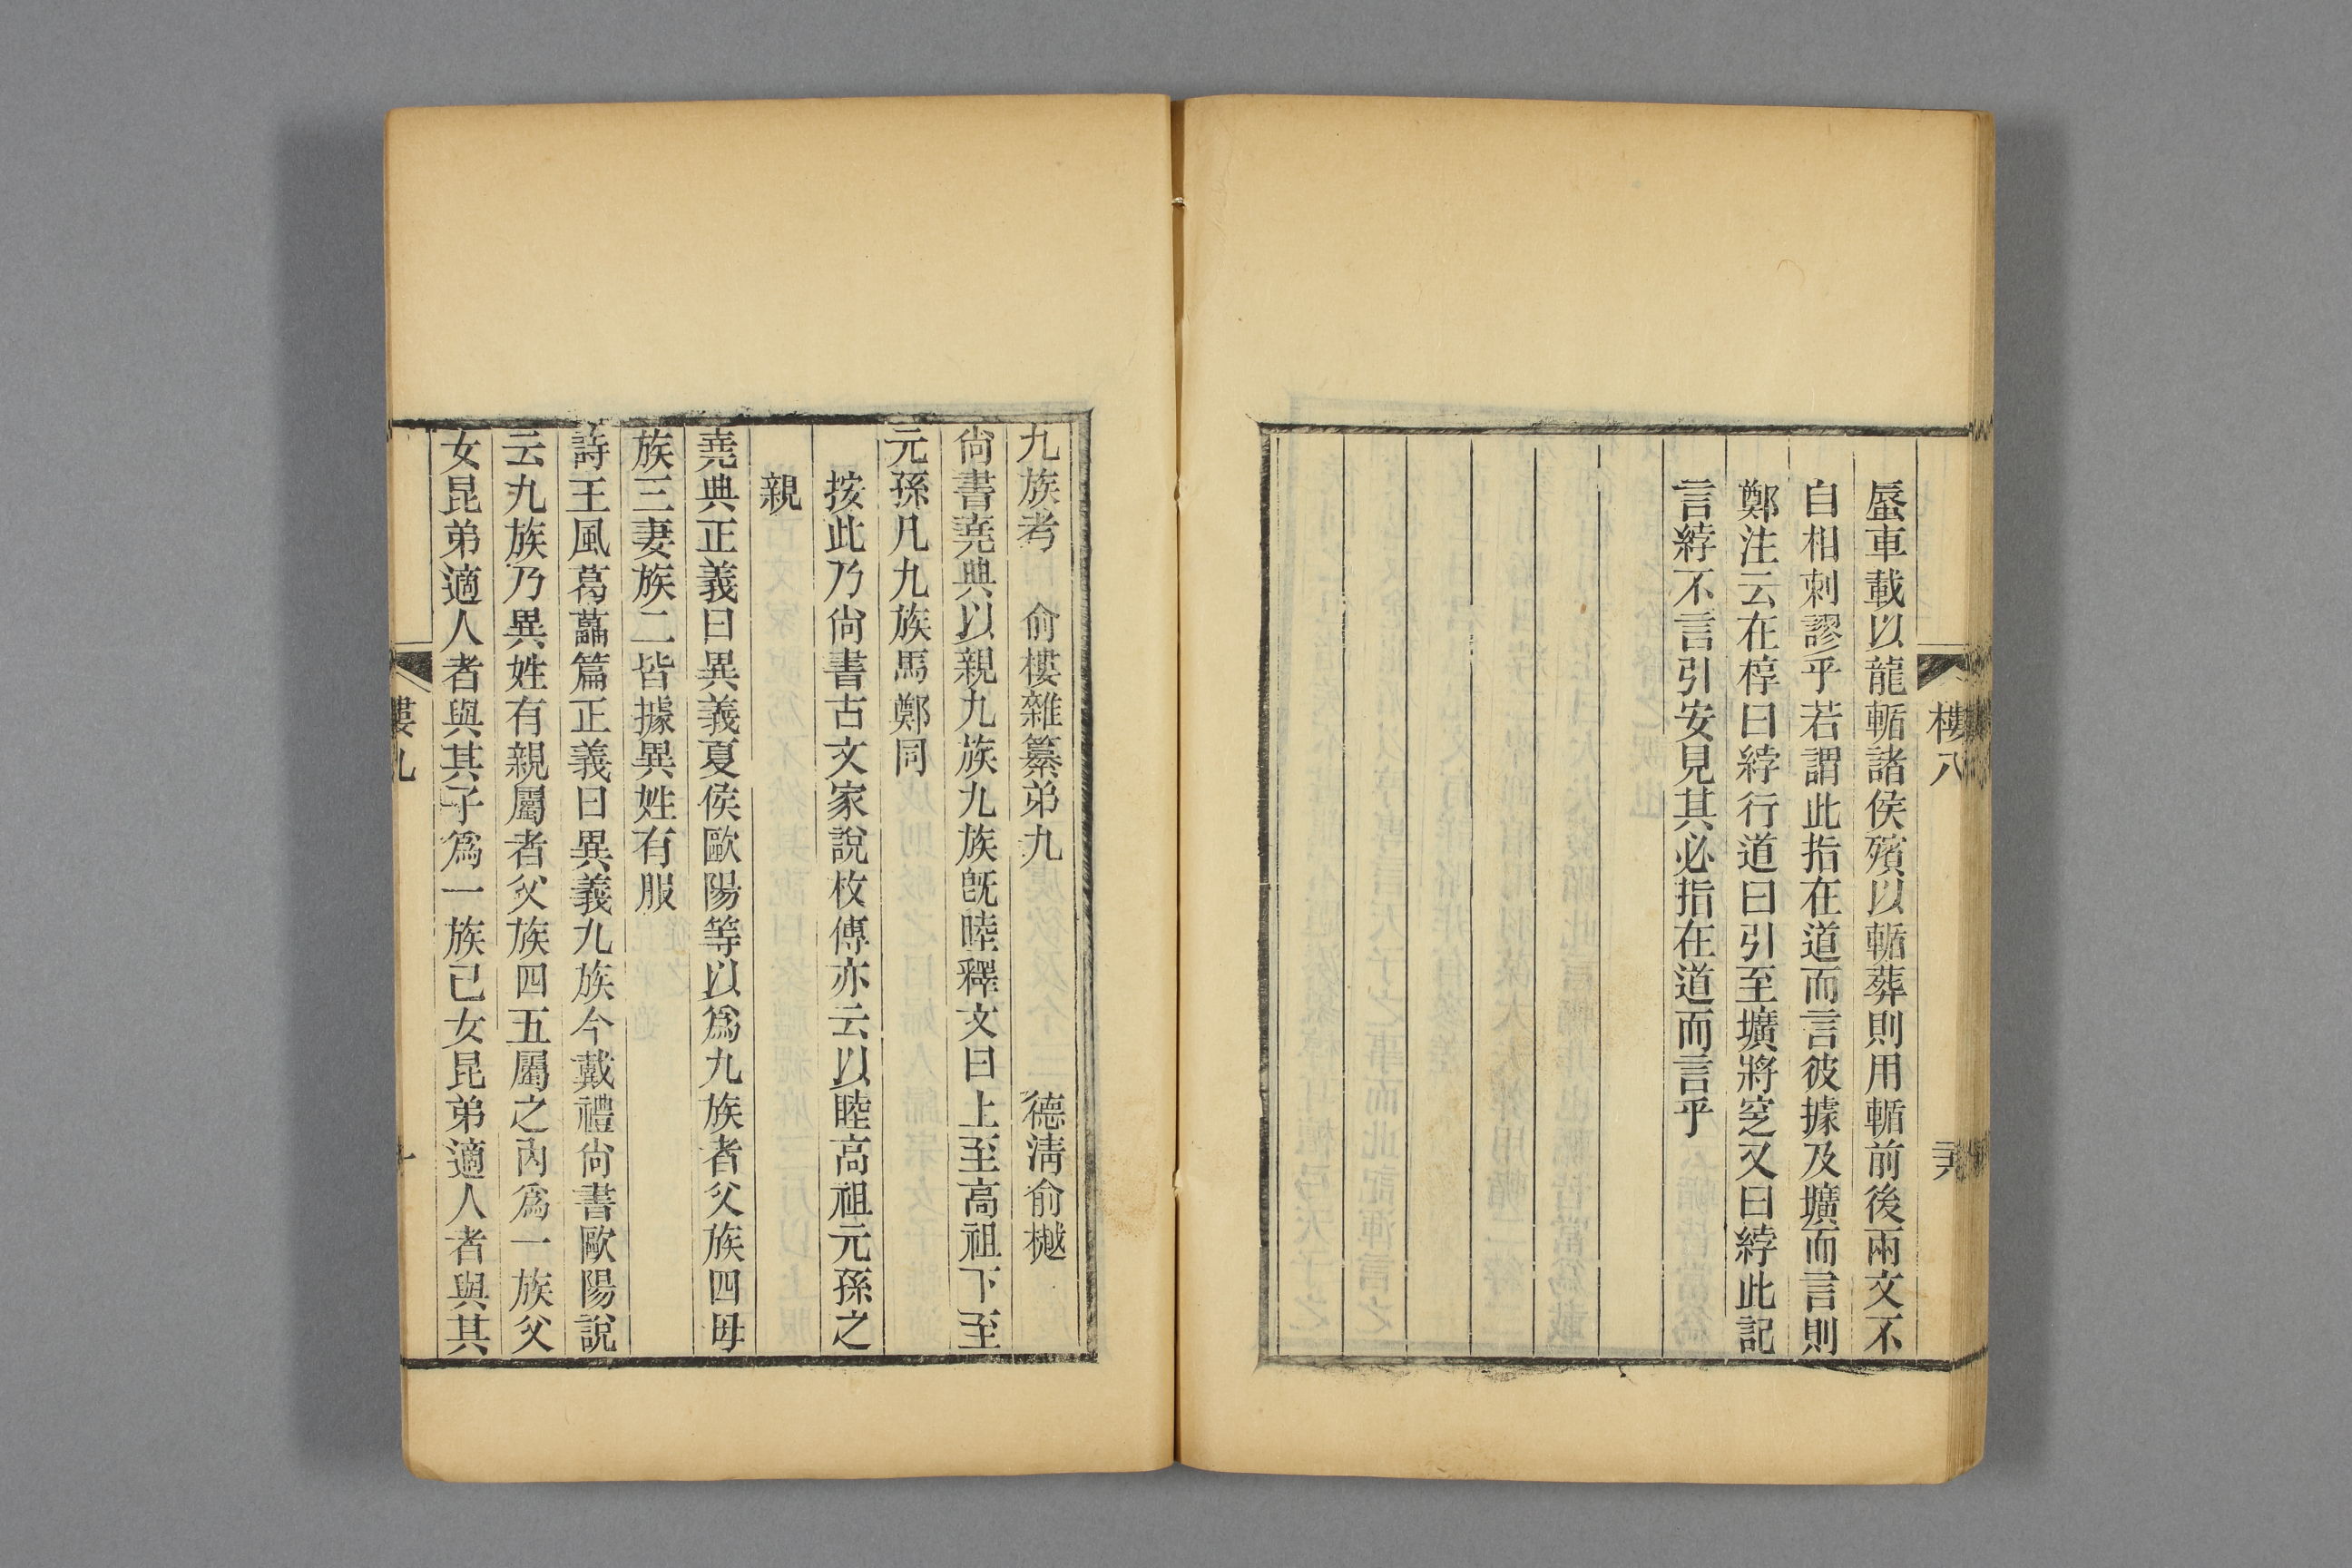 樓八
蜃車載以龍輴諸侯殯以輴葬則用輴前後兩文不
自相刺謬乎若謂此指在道而言彼據及壙而言則
鄭注云在椁曰綍行道曰引至壙將窆又曰綍此記
言綍不言引安見其必指在道而言乎
九族考 俞樓雜纂弟九 德清俞樾
尙書堯典以親九族九族旣睦釋文曰上至高祖下至
元孫凡九族馬鄭同
按此乃尙書古文家說枚傳亦云以睦高祖元孫之
親
堯典正義曰異義夏侯歐陽等以爲九族者父族四母
族三妻族二皆據異姓有服
詩王風葛藟篇正義曰異義九族今戴禮尙書歐陽說
云九族乃異姓有親屬者父族四五屬之內爲一族父
女昆弟適人者與其子爲一族己女昆弟適人者與其
樓九